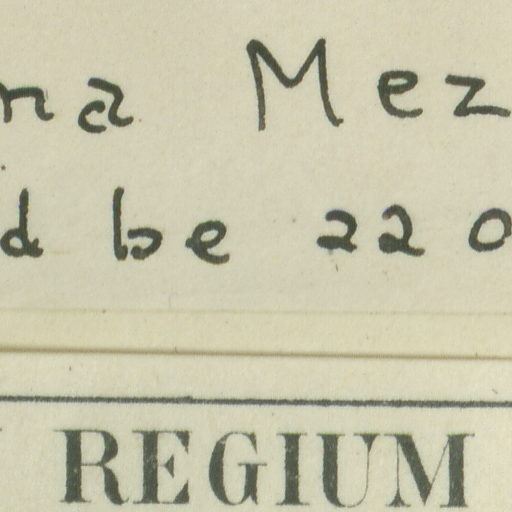 na Mez
d be 220
REGIUM